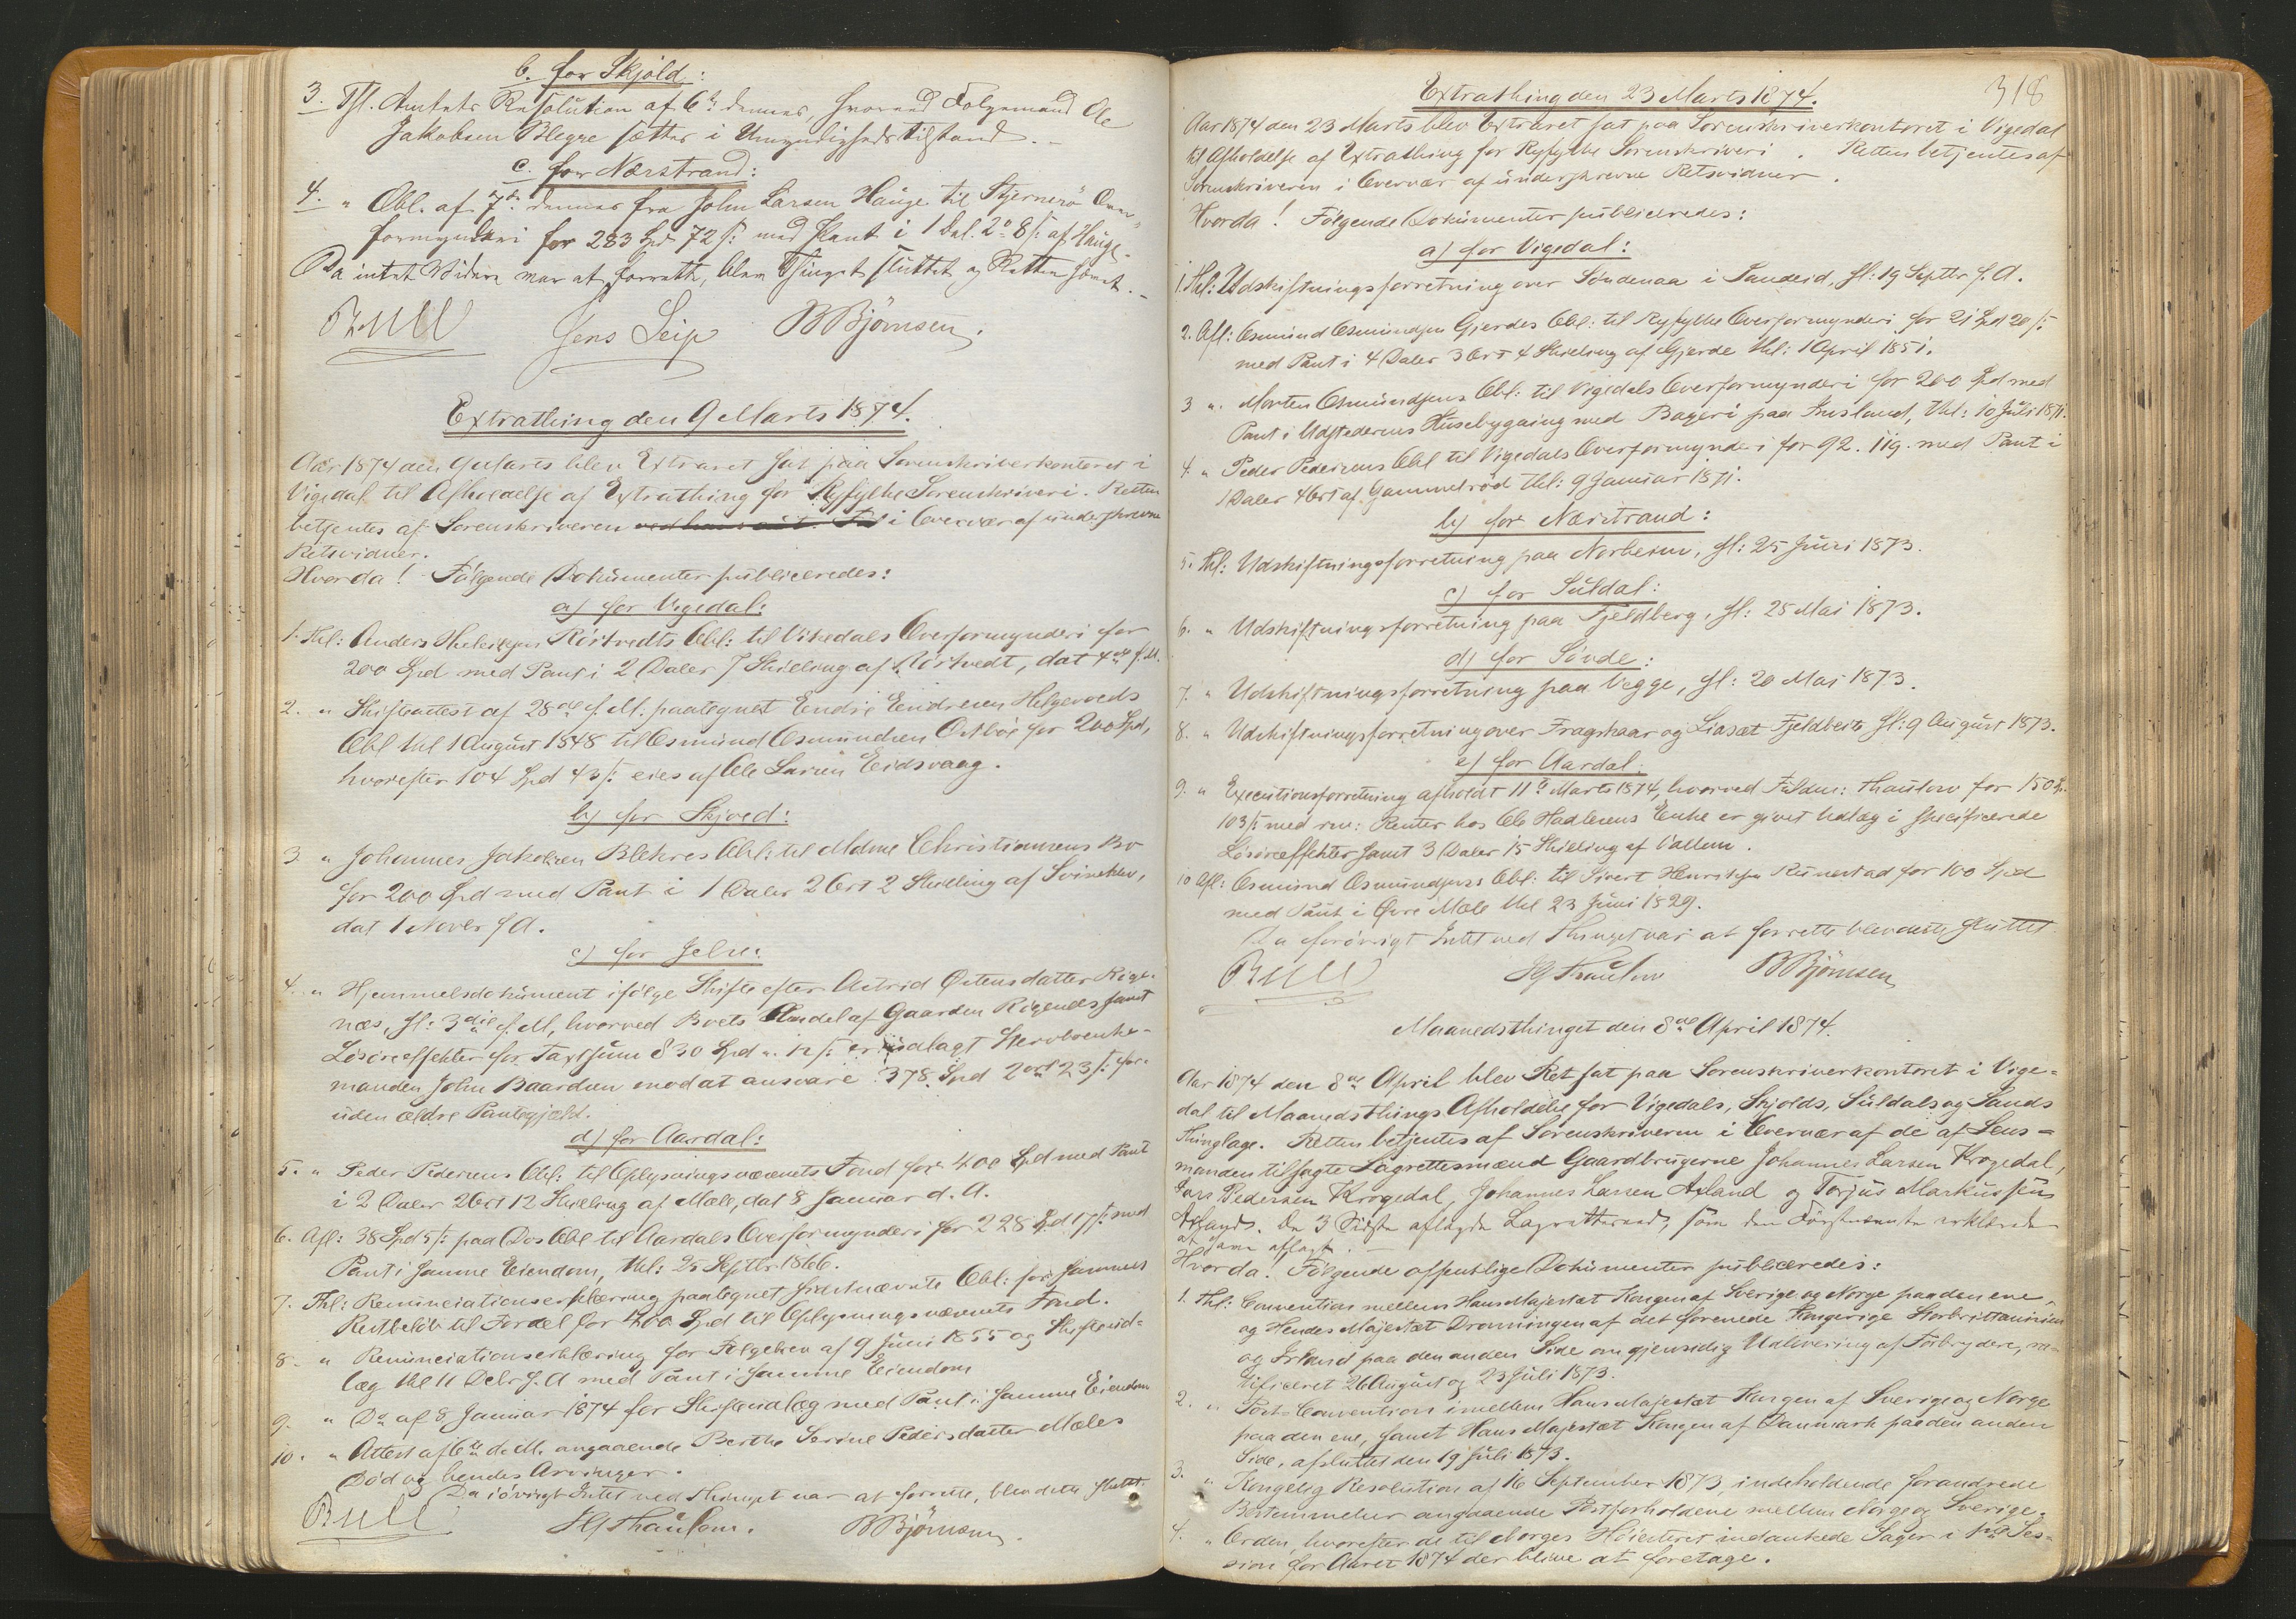 b. for Skjold:
3. Thl. Amtets Resolution af 6te dennes hvorved Folgemand Ole
Jakobsen Blegre sættes i Umyndighedstilstand.
c. for Nærstrand:
4. " Obl. af 7de dennes fra John Larsen Hauge til Stjernerö Over-
formynderi for 283 Spd 72 ß med Pant i 1 Dal. 2 8 ß af Hauge.
Da intet Videre var at forrette, blev Thinget sluttet og Retten hævet.
Bull Jens Leip B Bjørnsen.
Extrathing den 9 Marts 1874.
Aar 1874 den 9 Marts blev Extraret sat paa Sorenskriverkontoret i
Vigedal til Afholdelse af Extrathing for Ryfylke Sorenskriveri. Retten
betjentes af Sorenskriveren i Overvær af underskrevne
Retsvidner.
Hvorda! Følgende Dokumenter publiceredes:
a) for Vigedal:
1. Thl: Anders Rörtvedts Obl: til Vikedals Overformynderi for
200 Spd med Pant i 2 Daler 7 Skilling af Rörtvedt, dat 4de f. M.
2. " Skifteattest af 28de f. M. paategnet Endre Endresen Helgevolds
Obl thl 1 August 1848 til Osmund Osmundsen Østbö for 200 Spd,
hvorefter 104 Spd 43 ß eies af Ole Larsen Eidsvaag.
b) for Skjold:
3 " Johannes Jakobsen Blekres Obl: til Mdme Christiansens Bo
for 200 Spd med Pant i 1 Daler 2 Ort 2 Skilling af Svineklev,
dat 1 Novbr f A.
c) for Jelse:
4. " Hjemmelsdokument ifölge Skifte efter Astrid Østensdatter Rige-
næs, sl: 3die f. M, hvorved Boets Andel af Gaarden Rigenæs samt
Lösöreeffekter for Taxtsum 830 Spd " 12 ß er udlagt Stervboenke-
manden John Baardsen mod at ansvare 378 Spd 2 ort 23 ß for-
uden ældre Pantegjæld.
d) for Aardal:
5. " Peder Pedersens Obl: til Oplysningsvæsenets Fond for 400 Spd med Pant
i 2 Daler 2 Ort 12 Skilling af Mæle, dat 8 Januar d. A.
6. Afl: 38 Spd 5 ß paa Do's Obl til Aardals Overformynderi for 228 Spd 17 ß med
Pant i samme Eiendom, thl: 25 Septbr 1866.
7. Thl: Renunciationserklæring paategnet sidstnævnte Obl: for sammes
Restbelöb til Fordel for 400 Spd til Oplysningsvæsenets Fond.
8. " Renunciationserklæring for Fölgebrev af 9 Juni 1855 og Skifteud-
læg thl 11 Debr f. A med Pant i samme Eiendom
9. " Do af 8 Januar 1874 for Skifteudlæg med Pant i samme Eiendom
10. " Attest af 6te d. M. angaaende Berthe Serine Pedersdatter Mæles
Död og hendes Arvinger.
Da iövrigt Intet ved Thinget var at forrette, blev dette sluttet.
Bull HG Thaulow. B Bjørnsen.
318
Extrathing den 23 Marts 1874.
Aar 1874 den 23 Marts blev Extraret sat paa Sorenskriverkontoret i Vigedal
til Afholdelse af Extrathing for Ryfylke Sorenskriveri. Retten betjentes af
Sorenskriveren i Overvær af underskrevne Retsvidner.
Hvorda! Følgende Dokumenter publiceredes:
a) for Vigedal:
1. Thl: Udskiftningsforretning over Söndenaa i Sandeid, sl: 19 Septbr f. A.
2. Afl: Osmund Osmundsen Gjerdes Obl: til Ryfylke Overformynderi for 21 Spd 20 ß
med Pant i 4 Daler 3 Ort 4 Skilling af Gjerde thl: 1 April 1851.
3 ". Morten Osmundsens Obl: til Vigedals Overformynderi for 200 Spd med
Pant i Udstederens Husebygning med Bageri paa Imsland, thl: 10 Juli 1871.
4 " Peder Pedersens Obl til Vigedals Overformynderi for 92. 119. med Pant i
1 Daler 4 Ort af Gammelröd thl: 9 Januar 1871.
b) for Nærstrand:
5. Thl: Udskiftningsforretning paa Norheim, sl: 25 Juni 1873.
c) for Suldal:
6. " Udskiftningsforretning paa Fjeldberg, sl: 25 Mai 1873.
d) for Sövde:
7. " Udskiftningsforretning paa Vegge, sl: 20 Mai 1873.
8. " Udskiftningsforretning over Fragskaar og Liaset Fjeldbeite sl: 9 August 1873.
e) for Aardal:
9. " Executionsforretning afholdt 11te Marts 1874, hvorved Fuldm: Thaulow for 150 Sp.
103 ß med rev: Renter hos Ole Hadlesens Enke er givet Udlæg i specificerede
Lösöreeffekter samt 3 Daler 15 Skilling af Valleim.
10 Afl: Osmund Osmundsens Obl: til Sivert Henriksen Runestad for 100 Spd
med Pant i Øvre Mæle thl 23 Juni 1829.
Da forövrigt Intet ved Thinget var at forrette blev dette sluttet
Bull HG Thaulow B Bjørnsen
Maanedsthinget den 8de April 1874.
Aar 1874 den 8de April blev Ret sat paa Sorenskriverkontoret i Vige-
dal til Maanedsthings Afholdelse for Vigedals, Skjolds, Suldals og Sands
Thinglage. Retten betjentes af Sorenskriveren i Overvær af de af Lens-
manden tilsagte Lagrettesmænd Gaardbrugerne Johannes Larsen Krogedal,
Lars Pedersen Krogedal, Johannes Larsen Axland og Torjus Markussen
Axland. De 3 Sidste aflagde Lagretteseed, som den Förstnævnte erklærede
at have aflagt.
Hvorda! Følgende offentlige Dokumenter publiceredes:
1. Thl: Convention mellem Hans Majestæt Kongen af Sverige og Norge paa den ene,
og Hendes Majestæt Dronningen af det forenede Kongerige Storbrittannien
og Irland paa den anden Side om gjensidig Udlevering af Forbrydere, ra-
tificeret 26 August og 23 Juli 1873.
2. " Post-Convention imellem Hans Majestæt Kongen af Sverige og Norge
paa den ene, samt Hans Majestæt Kongen af Danmark paa den anden
Side, afsluttet den 19 Juli 1873.
3. " Kongelig Resolution af 16 September 1873, indeholdende forandrede
Bestemmelser angaaende Postforholdene mellem Norge og Sverige.
4. " Orden, hvorefter de til Norges Höiesteret indankede Sager i 1ste Ses-
sion for Aaret 1874 der blive at foretage.